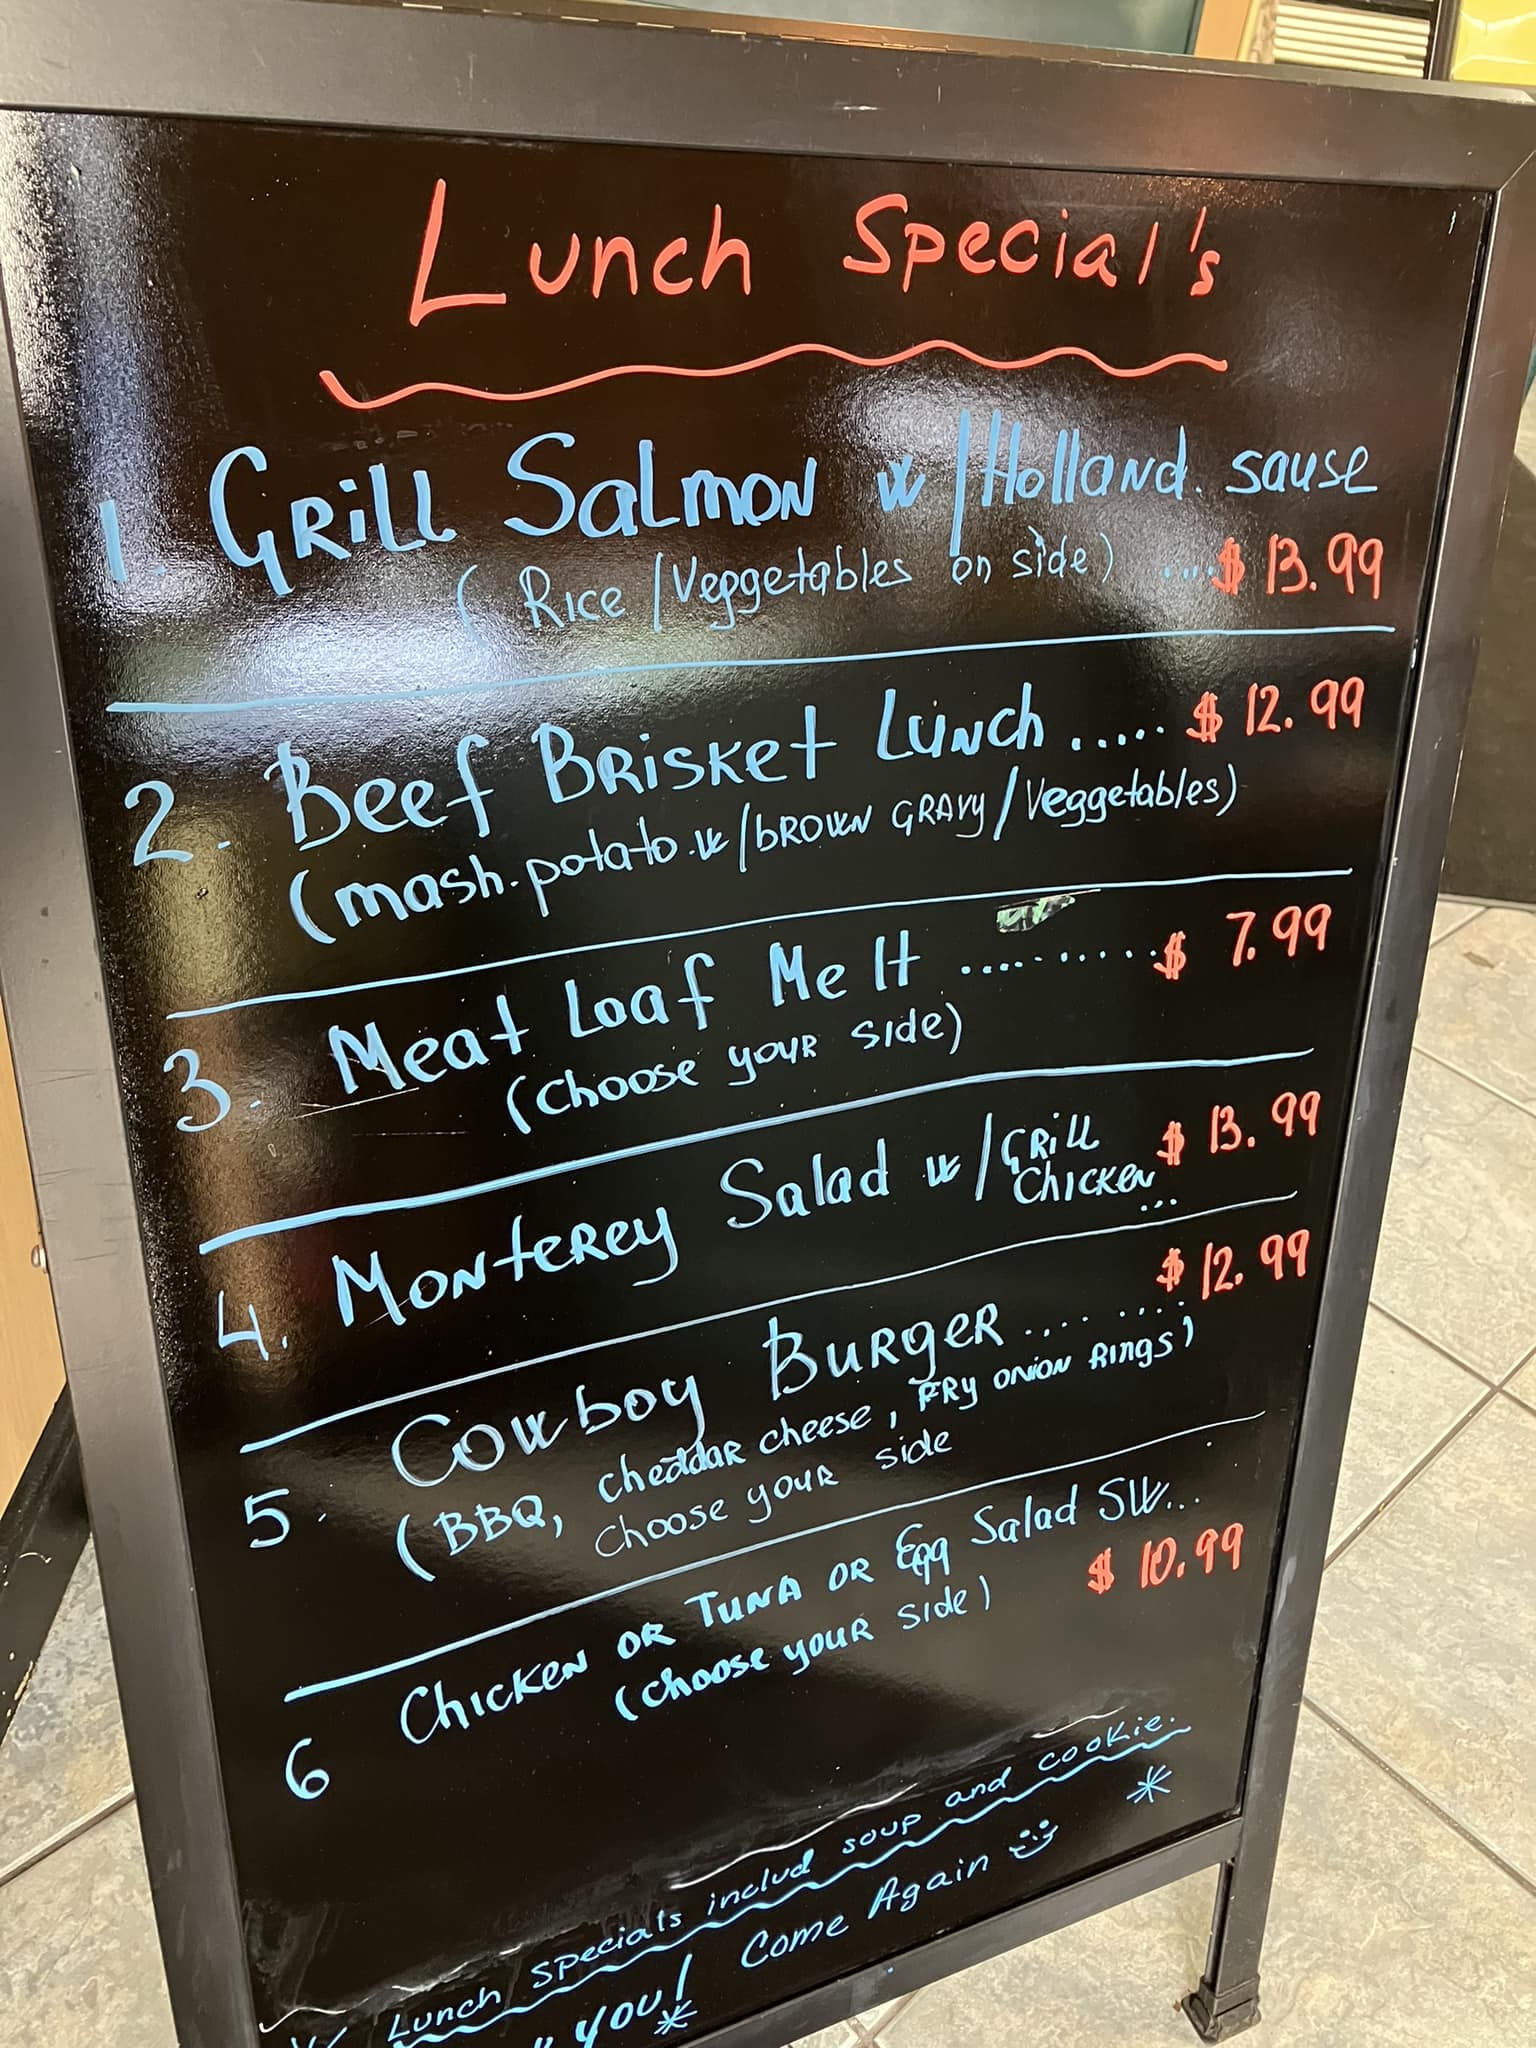 Lunch Special's
1. Grill Salmon w/Holland. sause
(Rice/Veggetables on side) ....$ 13.99
2. Beef Brisket Lunch ..... $ 12.99
(mash.potato.w/brown gravy/Veggetables)
3. Meat Loaf Melt .......... $ 7.99
(choose your side)
4. Monterey Salad w/Grill Chicken ... $ 13.99
5. Cowboy Burger ........ $ 12.99
(BBQ, cheddar cheese, FRY onion Rings)
choose your side
6 Chicken or Tuna or Egg Salad SW...
(choose your side) $ 10.99
* Lunch specials includ soup and cookie. *
you! Come Again